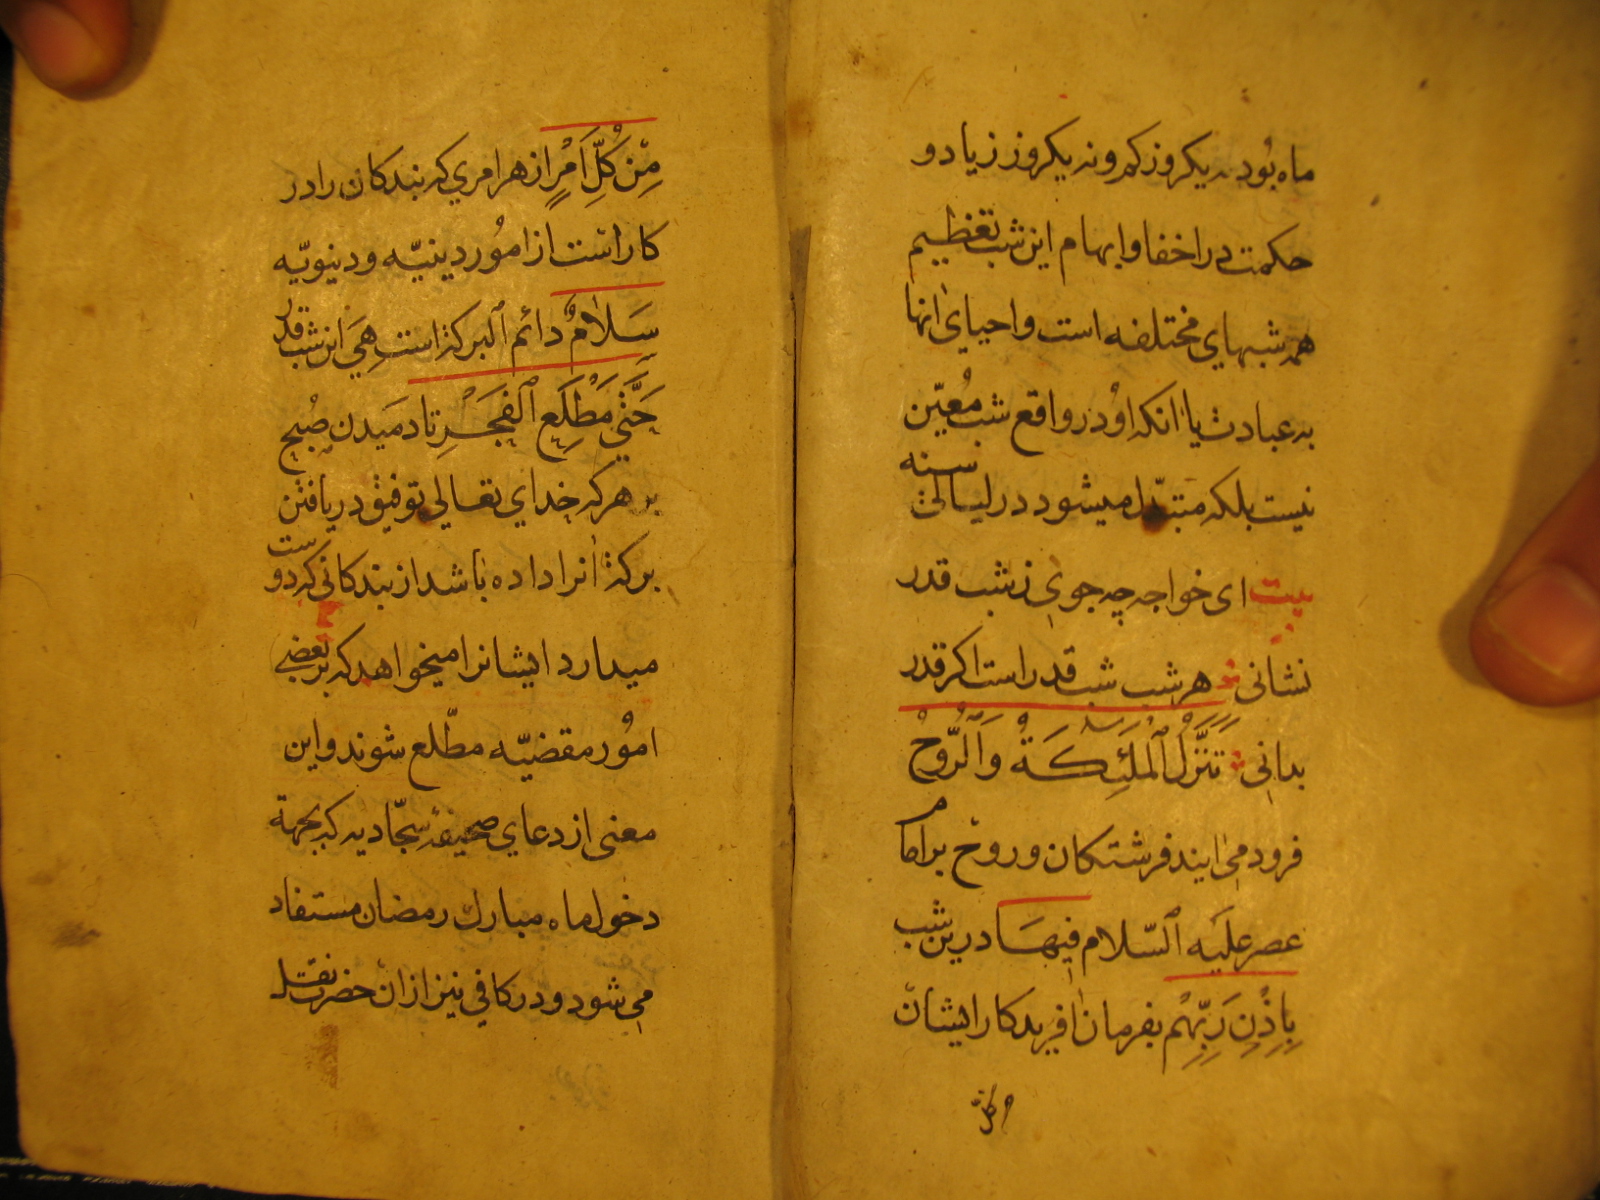 ماه بُود نه یکروز کم و نه یکروز زیاد و
حکمت در اخفا و ابهام این شب تعظیم
همه شبهای مختلفه است و احیای انها
به عبادت یا انکه او در واقع شب مُعیّن
نیست بلکه متبدّل میشود در لیالی سنه
بیت ای خواجه چه جوی ز شب قدر
نشانی هر شب شب قدر است اکر قدر
بدانی تَنَزَّلُ ٱلْمَلٰٓئِكَةُ وَٱلرُّوحُ
فرود می ایند فرشتکان و روح بر امام
عصر علَیه ٱلسّلام فِیهَا درین شب
بِاِذْنِ رَبِّهِمْ بفرمان افریدکار ایشان
مِن كُلِّ
مِنْ كُلِّ اَمْرٍ از هر امری که بندکان را در
کار است از امُور دینیّه و دینویّه
سَلاٰمٌ دائم ٱلبرکة است هِیَ این شب قدر
حَتّٰی مَطْلَعِ ٱلْفَجْرِ تا دمَیدن صُبح
بر هر که خدای تعالی توفیق دریافتن
برکة انرا داده باشد از بندکانی که دوست
میدارد ایشانرا میخواهد که بر بعضی
امُور مقضیّه مطّلع شوند و این
معنی از دعای صحیفهٔ سجّادیه که بجهة
دخول ماه مبارک رمضان مستفاد
می شود و در کافی نیز از ان حضرت نقل